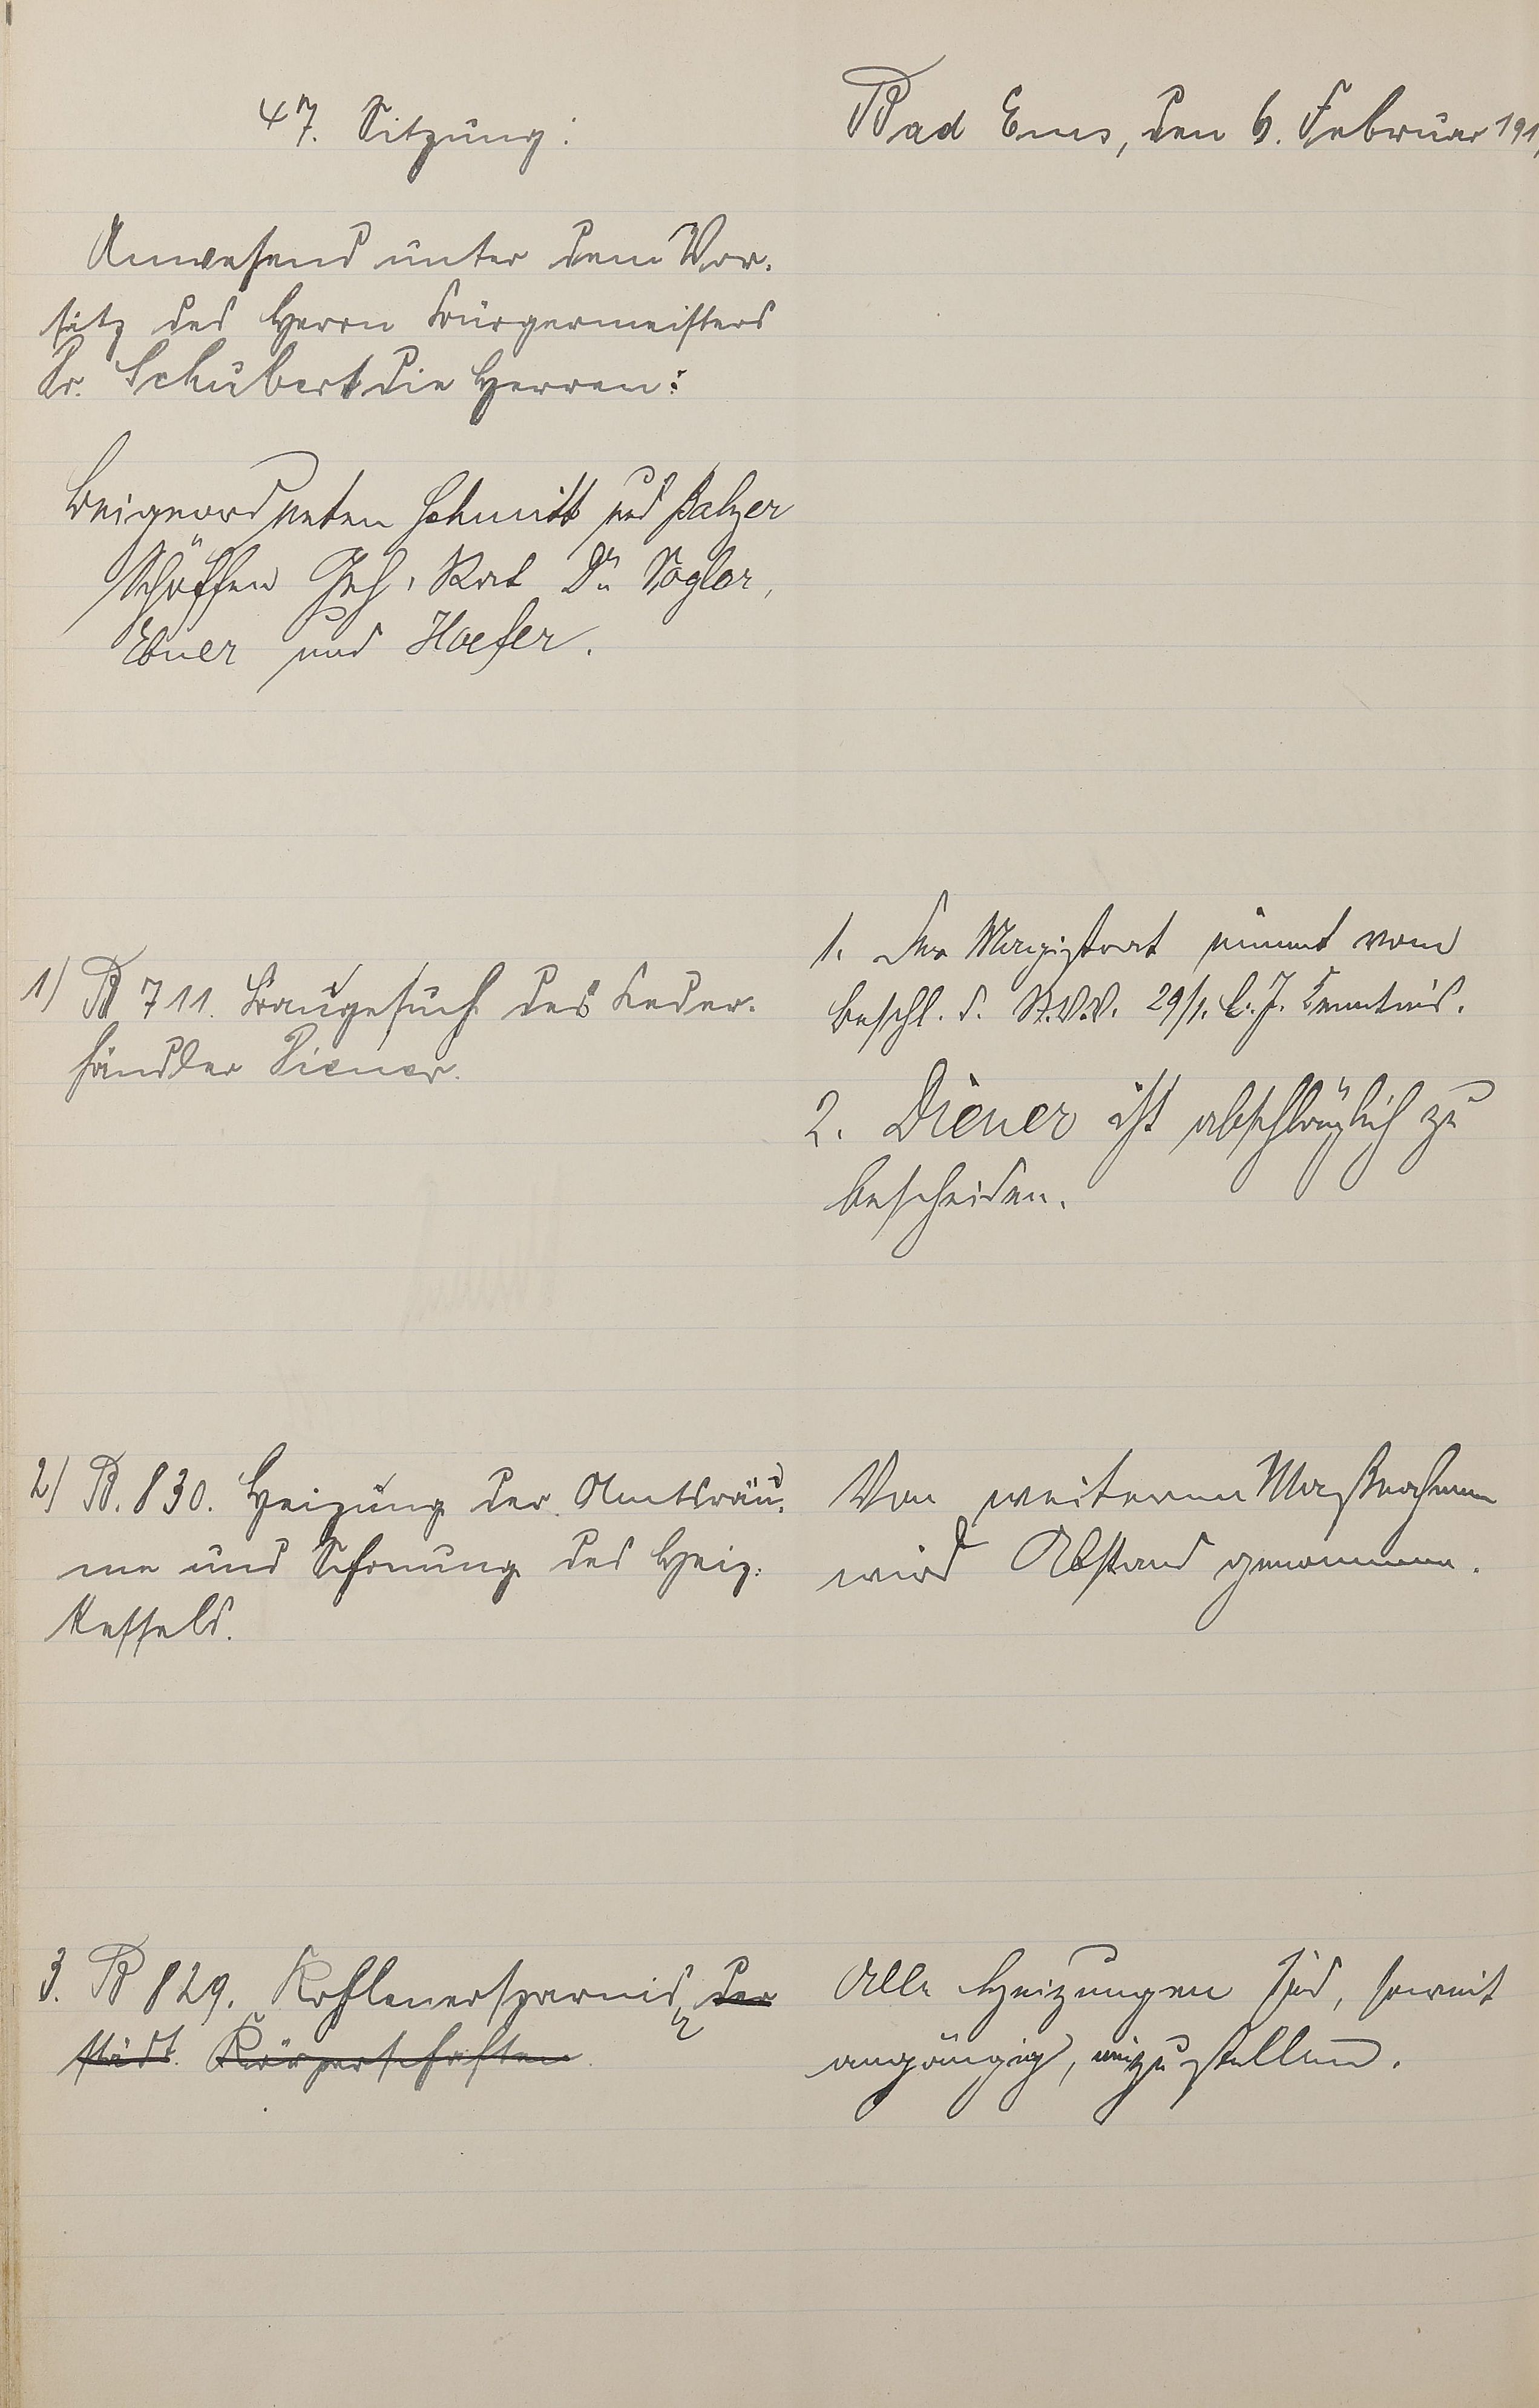 47. Sitzung:
Bad Ems, den 6. Februar 191
Anwesend unter dem Vor-
sitz des Herrn Bürgermeisters
Dr. Schubert die Herren:
Beigeordneten Schmitt und Balzer
Schöffen Geh. Rat Dr. Vogler,
Ebner und Hoefer.
1) B 711. Baugesuch des Leder-
händler Diener.
1. Der Magistrat nimmt vom
Beschl. d. St.V.V. 29/1. l. J. Kenntnis.
2. Diener ist abschläglich zu
bescheiden.
2) B. 830. Heizung der Amtsräu-
me und Schonung des Heiz-
kessels.
Von weiteren Maßnahmen
wird Abstand genommen.
3. B 829. Kohlenersparnis der
städt. Körperschaften.
Alle Heizungen sind, soweit
angängig, einzustellen.